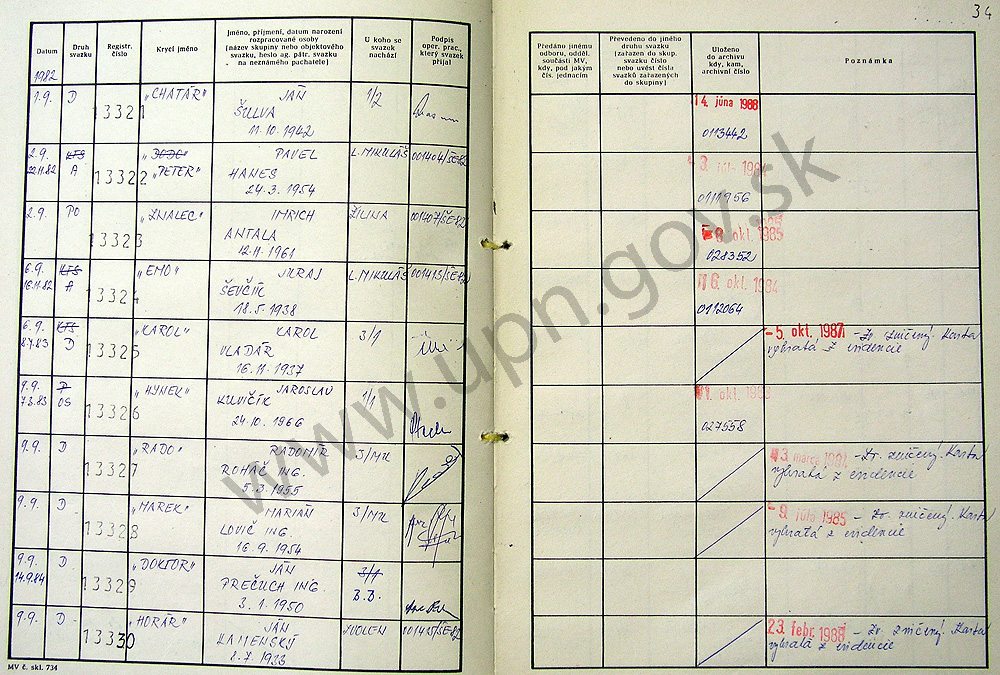 34
Datum
Druh svazku
Registr. číslo
Krycí jméno
Jméno, příjmení, datum narození
rozpracované osoby
(název skupiny nebo objektového
svazku, heslo ag. pátr. svazku
na neznámého pachatele)
U koho se
svazek
nachází
Podpis
oper. prac.,
který svazek
přijal
Předáno jinému
odboru, odděl.
součásti MV,
kdy, pod jakým
čís. jednacím
Převedeno do jiného
druhu svazku
(zařazen do skup.
svazku číslo
nebo uvést čísla
svazků zařazených
do skupiny)
Uloženo
do archivu
kdy, kam,
archivní číslo
Poznámka
1982
1.9. D 13321 „CHATÁR" JÁN 1/2
ŠULVA
11.10.1942
14. júna 1988
0113442
2.9. KTS „BODO" PAVEL L.MIKULÁŠ 001404/ŠE-82
22.11.82 A 13322 „PETER" HANES
24.3.1954
0111956
2.9. PO 13323 „ZNALEC" IMRICH ŽILINA 001407/ŠE-82
ANTALA
12.11.1961
8. okt. 1985
028352
6.9. KTS „EMO" JURAJ L.MIKULÁŠ 001415/ŠE-82
16.11.82 A 13324 ŠEVČÍK
18.5.1938
6. okt. 1984
0112064
6.9. KTS „KAROL" KAROL 3/1
8.7.83 D 13325 VLADÁR
16.11.1937
-5. okt. 1987 - Zv. zničený. Karta
vybratá z evidencie
9.9. P „HYNEK" JAROSLAV 1/1
7.3.83 OS 13326 KUVIČÍK
24.10.1966
027558
9.9. D 13327 „RADO" RADOMÍR 3/MK
ROHÁČ ING.
5.3.1955
- Zv. zničený. Karta
vybratá z evidencie
9.9. D 13328 „MAREK" MARIAN 3/MK
LOVIČ ING.
16.9.1954
- 9. júla 1985 - Zv. zničený. Karta
vybratá z evidencie
9.9. D „DOKTOR" JÁN 3/1
14.9.84 13329 PREČUCH ING. B.B.
3.1.1950
9.9. D 13330 „HORÁR" JÁN ZVOLEN 001425/ŠE-82
KAMENSKÝ
8.7.1933
23. febr. 1988 - Zv. zničený. Karta
vybratá z evidencie
MV č. skl. 734
www.upn.gov.sk